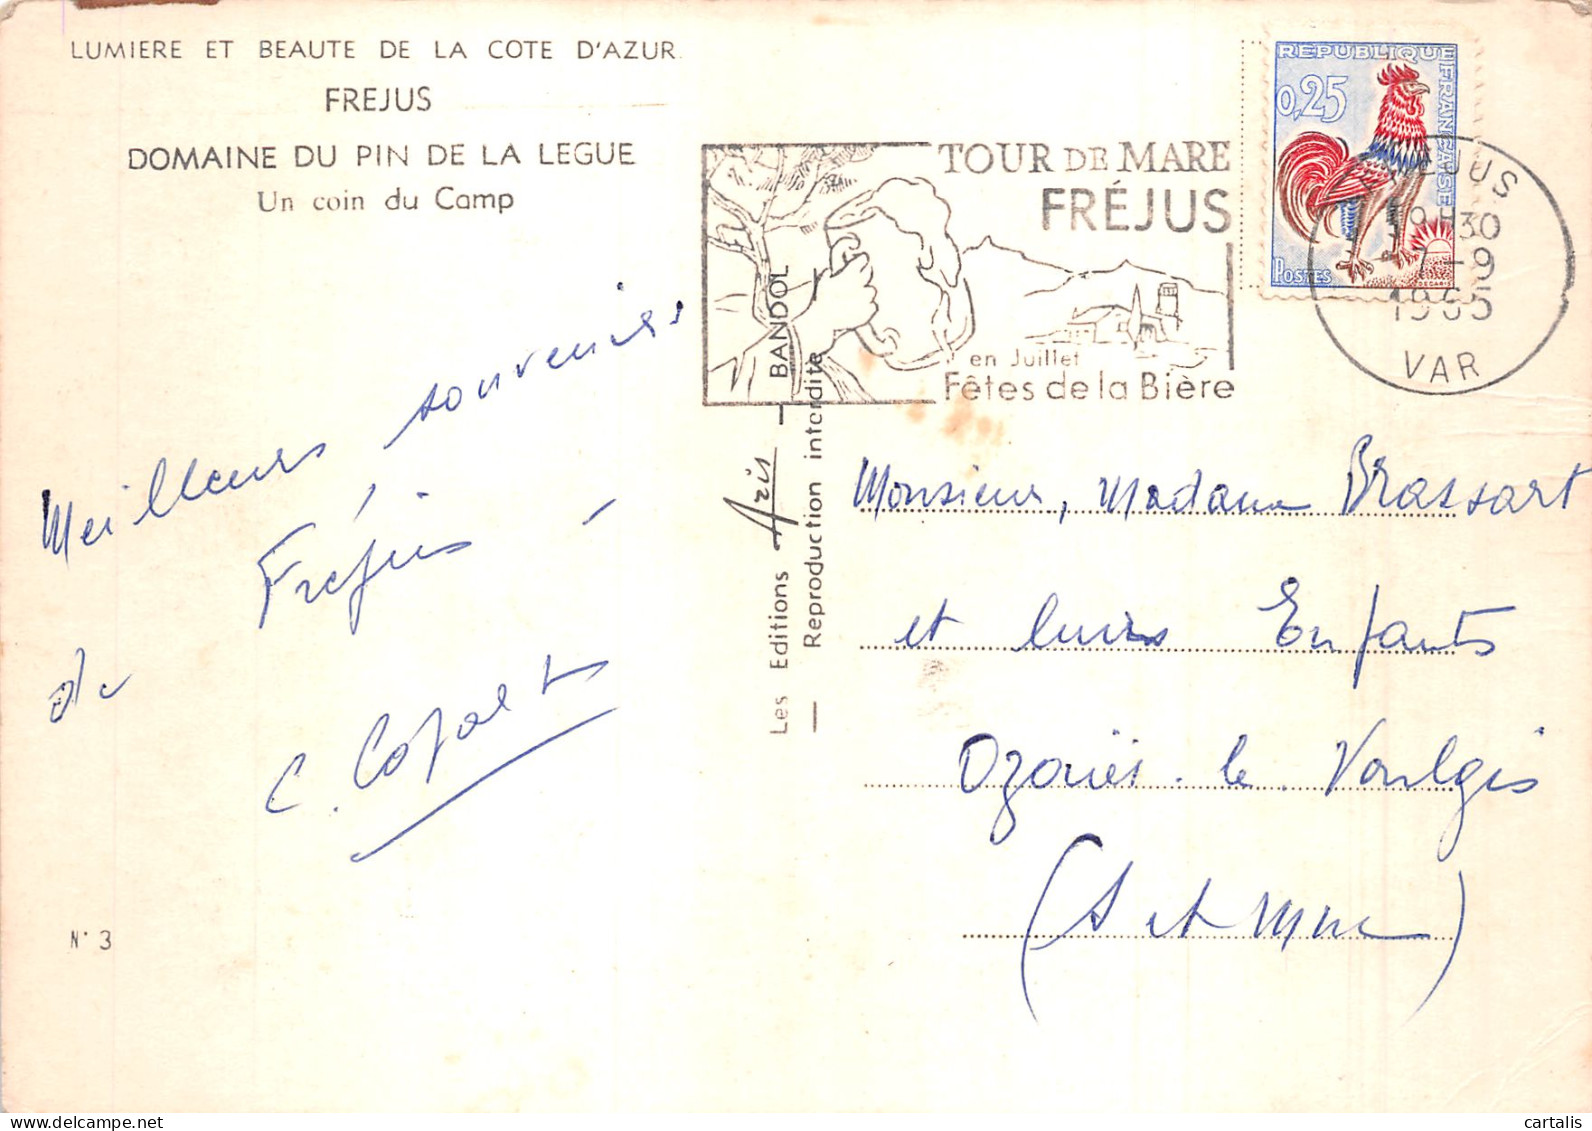 LUMIERE ET BEAUTE DE LA COTE D'AZUR
FREJUS
DOMAINE DU PIN DE LA LEGUE
Un coin du Camp
Meilleurs souvenirs
Fréjus -
de
C. Cofart
N° 3
Les Editions Aris — BANDOL
— Reproduction interdite
TOUR DE MARE
FRÉJUS
en Juillet
Fêtes de la Bière
REPUBLIQUE FRANCAISE
0,25
POSTES
DECARIS
19H30
7-9
1965
VAR
Monsieur, Madame Brassart
et leurs Enfants
Ozouër. le Voulgis
(S et Marne)
cartalis